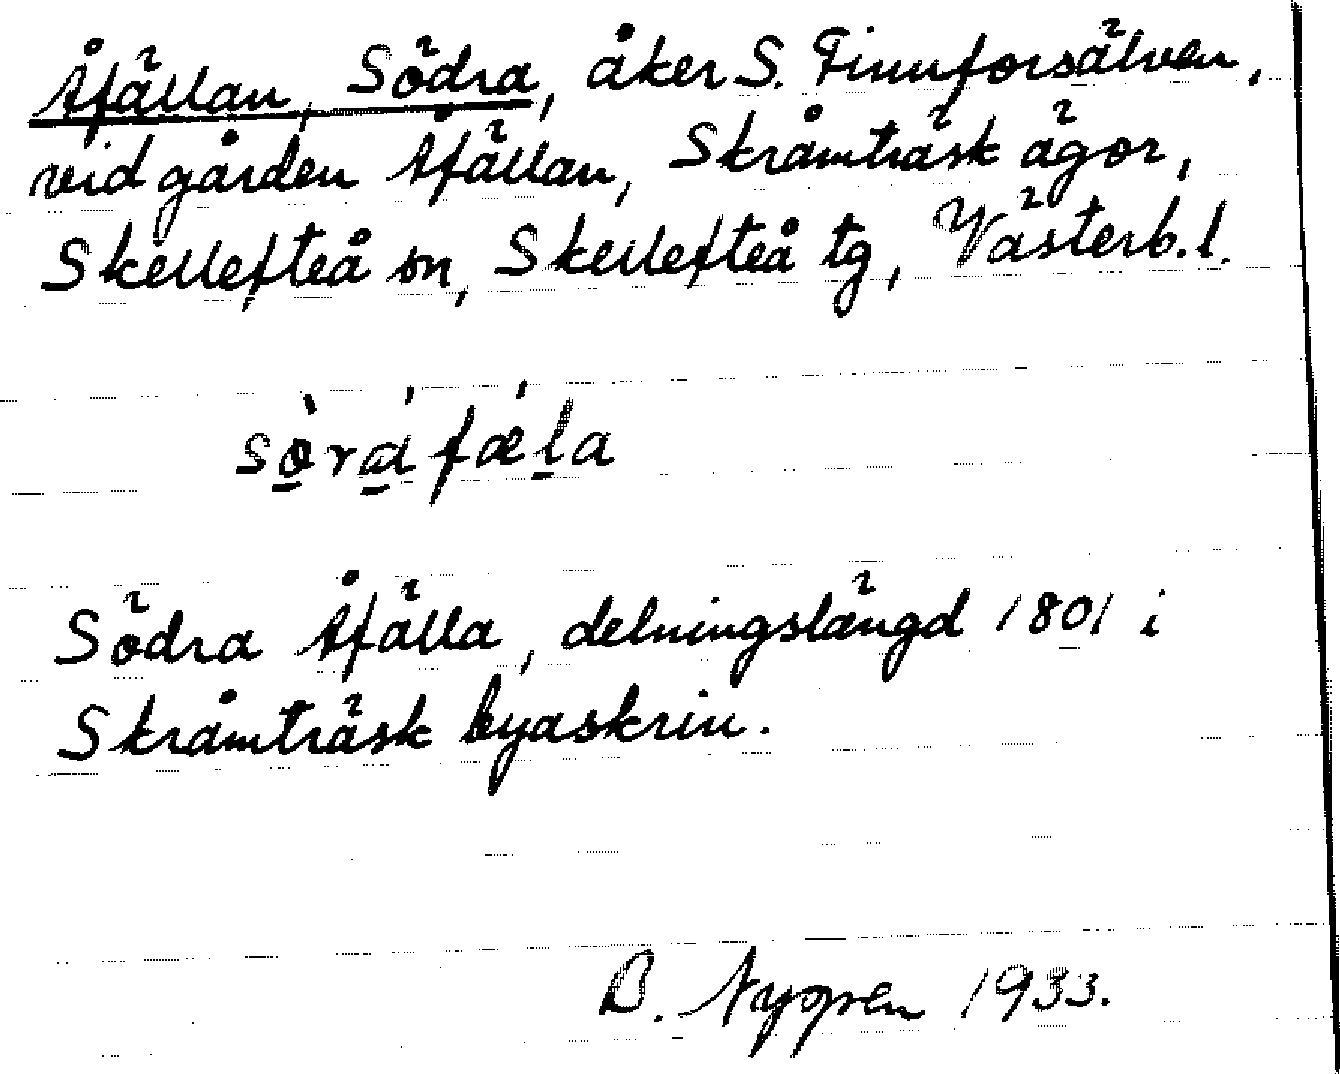 Åfällan, Södra, åker S. Finnforsälven,
vid gården Åfällan, Skråmträsk ägor,
Skellefteå sn, Skellefteå tg, Västerb. l.
Södra Åfälla, delningslängd 1801 i
Skråmträsk byaskrin.
B. 1933.